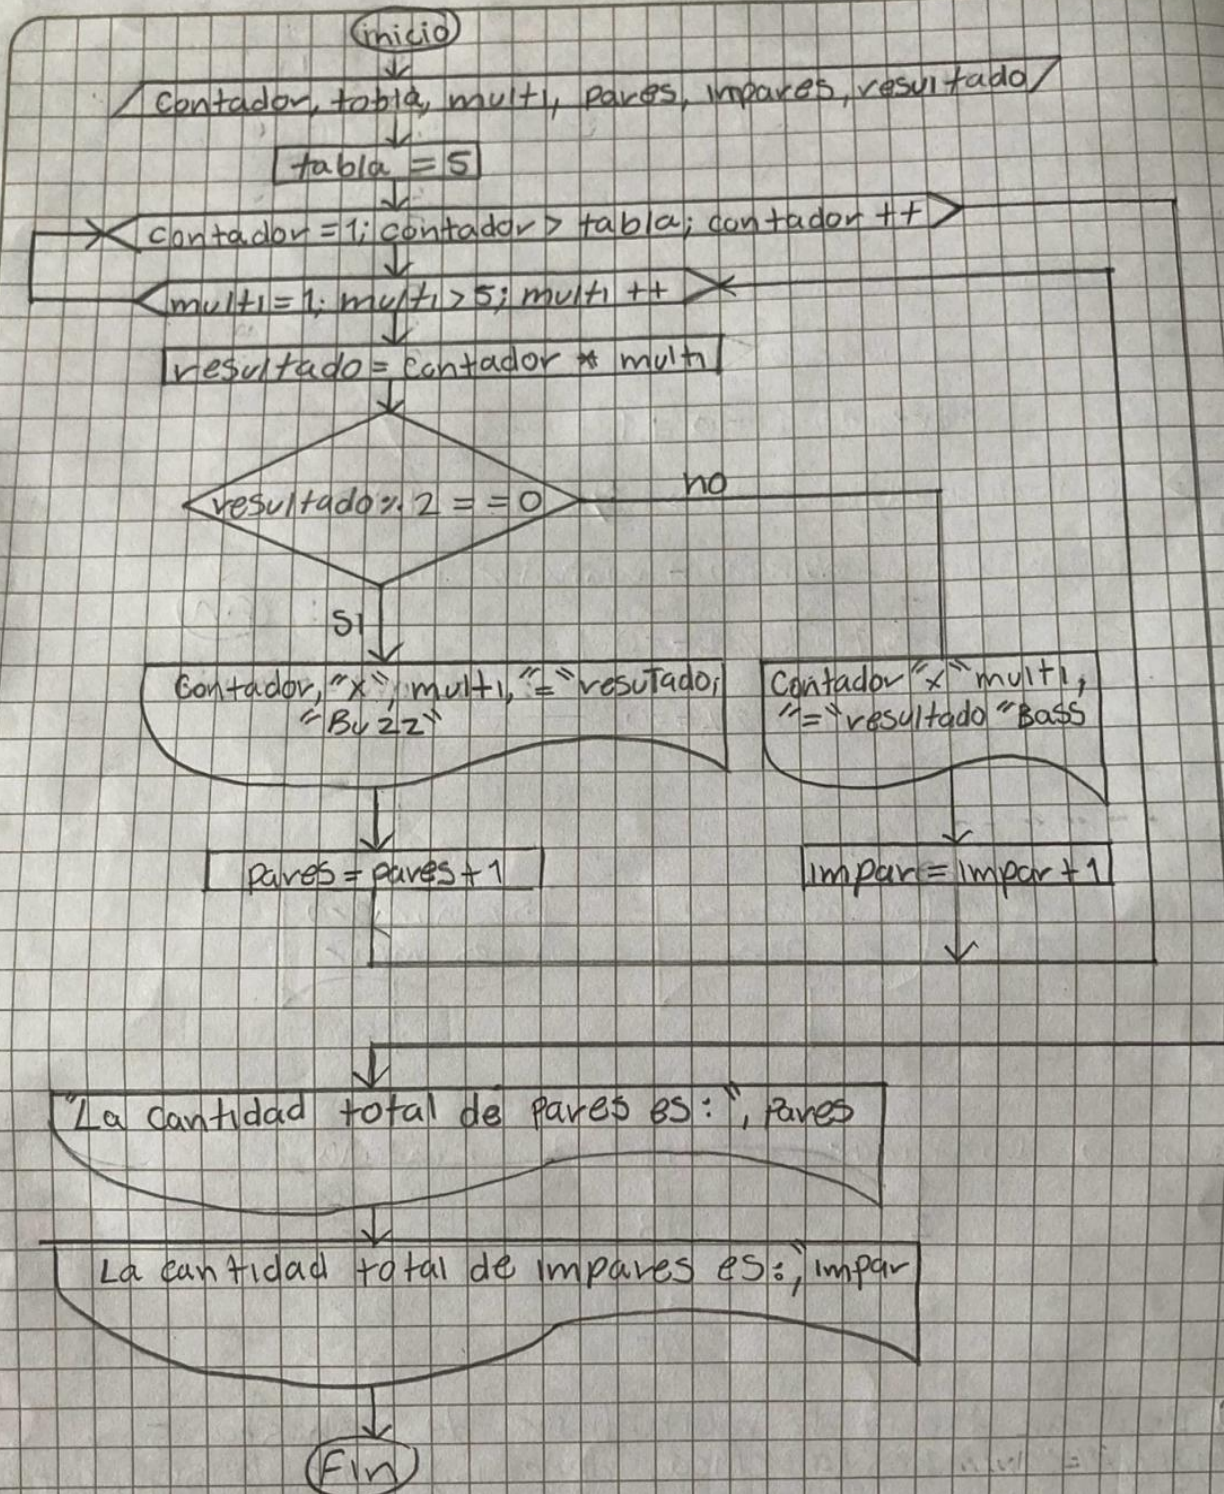 inicio
contador, tobla, multi, pares, impares, resultado
tabla = 5
contador = 1; contador > tabla; contador ++
multi = 1; multi > 5; multi ++
resultado = contador * multi
resultado % 2 = = 0
no
si
Contador, "x", multi, "=" resutado,
"Buzz"
Contador "x" multi,
"=" resultado "Bass
pares = pares + 1
impar = impar + 1
"La cantidad total de pares es: ", Pares
La cantidad total de impares es:," impar
Fin